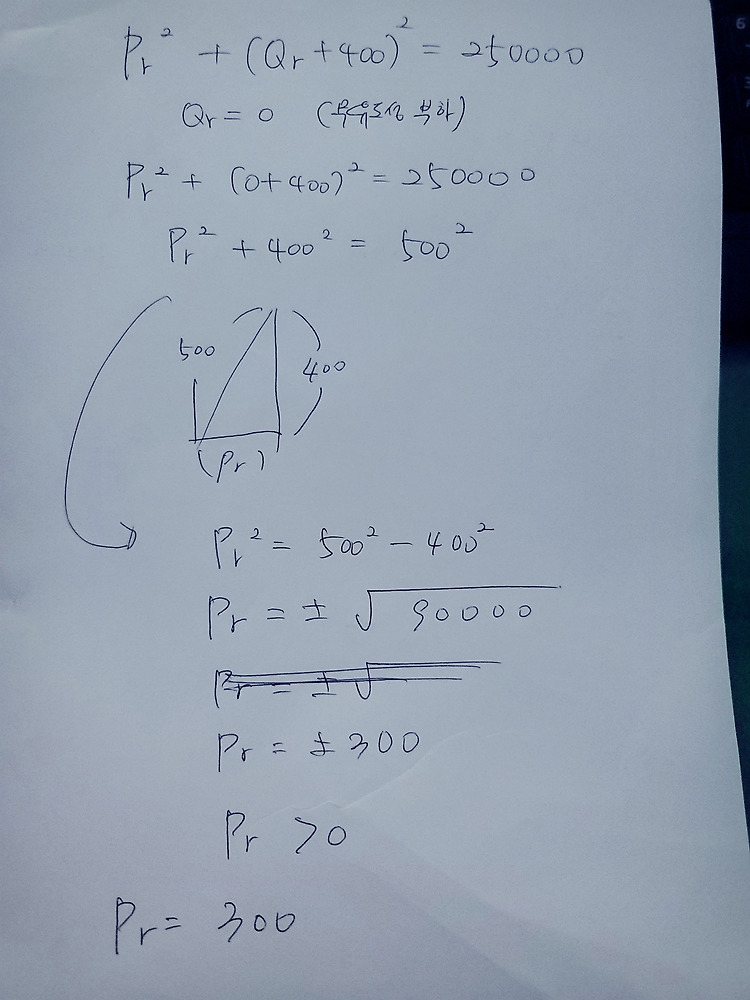 Pr² + (Qr+400)² = 250000
Qr = 0 (무유도성 부하)
Pr² + (0+400)² = 250000
Pr² + 400² = 500²
500
400
(Pr)
Pr² = 500² - 400²
Pr = ± √90000
Pr = ± √
Pr = ±300
Pr > 0
Pr = 300
6